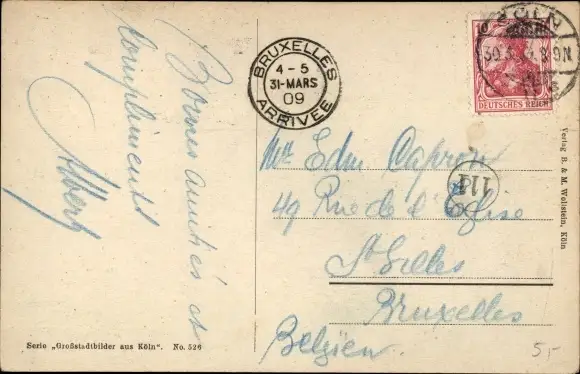 Bonnes amitiés et
compliments
Albert
BRUXELLES
4 - 5
31-MARS
09
ARRIVÉE
CÖLN
10
DEUTSCHES REICH
Edm Capron
114
49 Rue de l'Eglise
St Gilles
Bruxelles
Belgien.
Verlag B. & M. Wollstein, Köln
Serie „Großstadtbilder aus Köln". No. 526
5,-